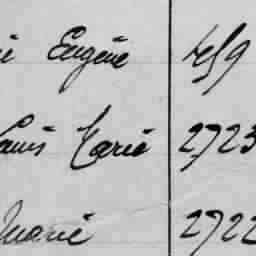 Eugène 459
Louis Marie 2723
Marie 2722